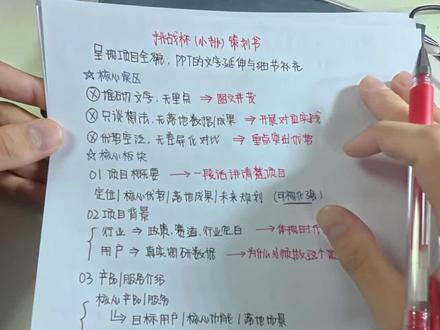 挑战杯(小挑)策划书
呈现项目全貌,PPT的文字延伸与细节补充
☆核心误区
ⓧ堆砌文字,无重点 → 图文并茂
ⓧ只谈想法,无落地数据/成果 → 开展对应实践
ⓧ优势空泛,无差异化对比 → 重点突出优势
☆核心板块
01 项目概要 → 一段话讲清楚项目
定位/核心优势/落地成果/未来规划 (可视化强)
02 项目背景
行业 → 政策、赛道、行业空白 → 体现时代
用户 → 真实调研数据 → 为什么必须做这个
03 产品/服务介绍
核心产品/服务
↳ 目标用户/核心功能/落地场景